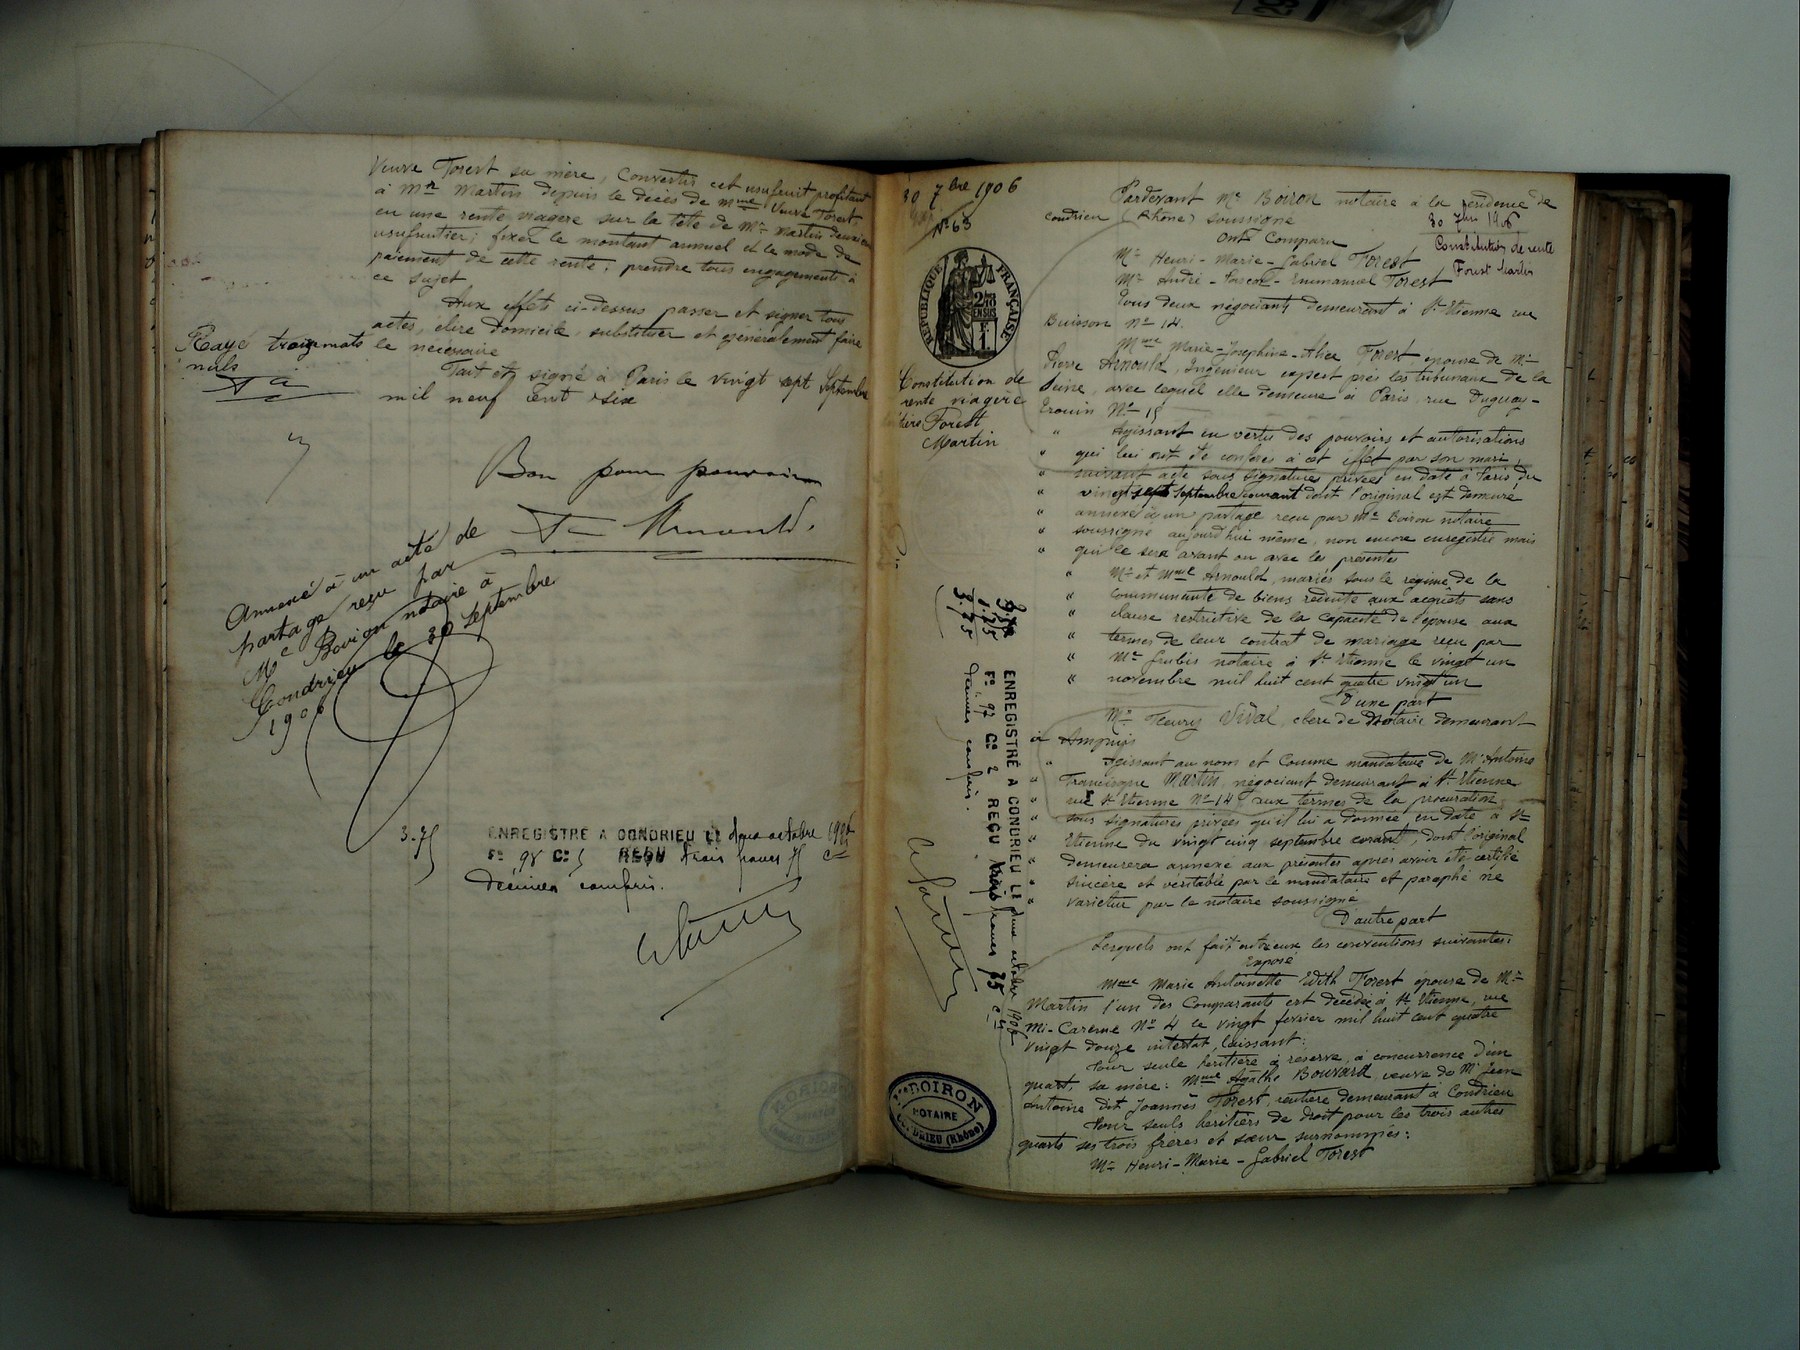 Veuve Forest sa mère, convertir cet usufruit profitant
à Mr Martin depuis le décès de Mme Veuve Forest,
en une rente viagère sur la tête de Mr Martin deuxième
usufruitier; fixer le montant annuel et le mode de
paiement de cette rente; prendre tous engagements à
ce sujet
Aux effets ci-dessus passer et signer tous
actes, élire domicile, substituer et généralement faire
le nécessaire
Fait et signé à Paris le vingt sept Septembre
mil neuf cent six
Rayé trois mots
nuls
Bon pour pouvoir
Arnould
Annexé à un acte de
partage reçu par
Me Boiron notaire à
Condrieu le 30 septembre
1906
3.75
ENREGISTRÉ A CONDRIEU LE deux octobre 1906
Fo 98 Co 5 REÇU trois francs 75 c
Décimes compris.
30 7bre 1906
No 63
RÉPUBLIQUE FRANÇAISE
Constitution de
rente viagère
Forest
Martin
3.75
ENREGISTRÉ A CONDRIEU LE deux octobre 1906
Fo 97 Co 2 REÇU trois francs 75 c
Décimes compris.
Me BOIRON
NOTAIRE
CONDRIEU (Rhône)
Pardevant Me Boiron notaire à la résidence de
Condrieu (Rhône) soussigné
30 7bre 1906
Constitution de rente
Forest Martin
Ont Comparu
Mr Henri-Marie-Gabriel Forest
Mr André-Pascal-Emmanuel Forest
Tous deux négociants demeurant à St Etienne rue
Buisson No 14.
Mme Marie-Joséphine-Alice Forest épouse de Mr
Pierre Arnould, Ingénieur expert près les tribunaux de la
Seine, avec lequel elle demeure à Paris, rue Duguay-
Trouin No 15
" Agissant en vertu des pouvoirs et autorisations
" qui lui ont été conférés à cet effet par son mari,
" suivant acte sous signatures privées en date à Paris du
" vingt sept septembre courant dont l'original est demeuré
" annexé à un partage reçu par Me Boiron notaire
" soussigné aujourd'hui même, non encore enregistré mais
" qui le sera avant ou avec les présentes
" Mr et Mme Arnould, mariés sous le régime de la
" communauté de biens réduite aux acquêts sans
" clause restrictive de la capacité de l'épouse aux
" termes de leur contrat de mariage reçu par
" Me Grubis notaire à St Etienne le vingt un
" novembre mil huit cent quatre vingt un
D'une part
Mr Fleury Vival, clerc de Notaire demeurant
à Ampuis
" Agissant au nom et comme mandataire de Mr Antoine
" Francisque Martin, négociant demeurant à St Etienne
" rue St Etienne No 14 aux termes de la procuration
" sous signatures privées qu'il lui a donnée en date à St
" Etienne du vingt cinq septembre courant, dont l'original
" demeurera annexé aux présentes après avoir été certifié
" sincère et véritable par le mandataire et paraphé ne
" varietur par le notaire soussigné
D'autre part
Lesquels ont fait entre eux les conventions suivantes:
Exposé
Mme Marie Antoinette Edith Forest épouse de Mr
Martin l'un des Comparants est décédée à St Etienne, rue
Mi-Carême No 4 le vingt février mil huit cent quatre
vingt douze intestat, laissant:
Pour seule héritière à réserve, à concurrence d'un
quart, sa mère: Mme Agathe Bouvard, veuve de Mr Jean
Antoine dit Joannès Forest, rentière demeurant à Condrieu
Pour seuls héritiers de droit pour les trois autres
quarts ses trois frères et sœur surnommés:
Mr Henri-Marie-Gabriel Forest